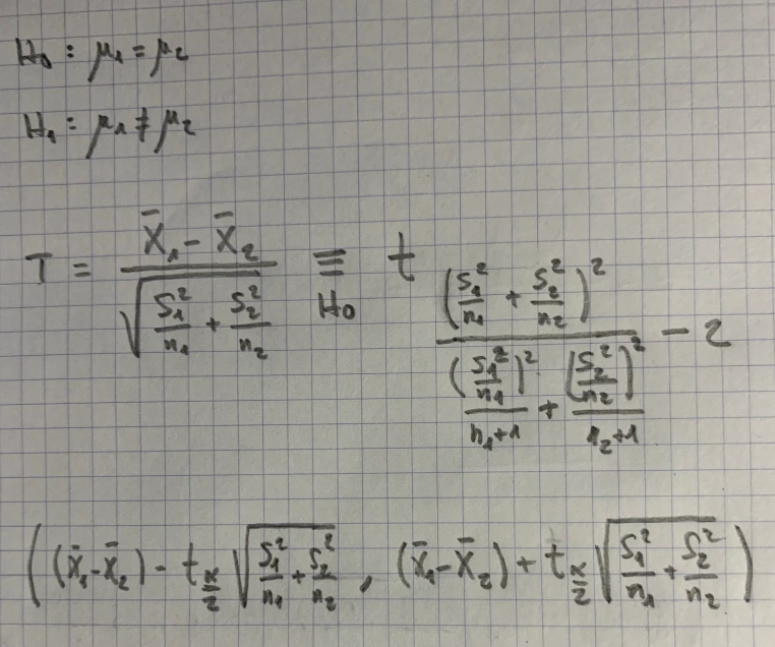 H₀: μ₁ = μ₂
H₁: μ₁ ≠ μ₂
T = \frac{\bar{X}_1 - \bar{X}_2}{\sqrt{\frac{S_1^2}{n_1} + \frac{S_2^2}{n_2}}} \underset{H_0}{\equiv} t_{\frac{\left(\frac{S_1^2}{n_1} + \frac{S_2^2}{n_2}\right)^2}{\frac{\left(\frac{S_1^2}{n_1}\right)^2}{n_1+1} + \frac{\left(\frac{S_2^2}{n_2}\right)^2}{n_2+1}} - 2}
\left( (\bar{X}_1 - \bar{X}_2) - t_{\frac{\alpha}{2}} \sqrt{\frac{S_1^2}{n_1} + \frac{S_2^2}{n_2}}, (\bar{X}_1 - \bar{X}_2) + t_{\frac{\alpha}{2}} \sqrt{\frac{S_1^2}{n_1} + \frac{S_2^2}{n_2}} \right)